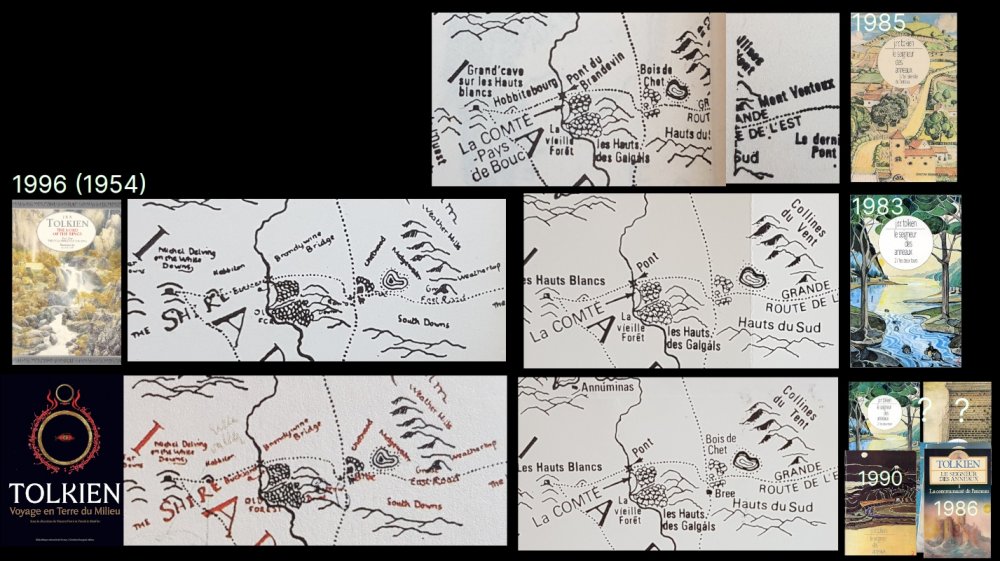 1985
j.r.r. tolkien
le seigneur
des
anneaux
Grand'cave
sur les Hauts
blancs
Hobbitebourg
Pont du
Brandevin
Bois de
Chet
LA COMTE
-Pays
de Bouc
A
La
vieille
Forêt
les Hauts
des Galgâls
GR
ROUT
Hauts du
Mont Venteux
ANDE
E DE L'EST
Le derni
Pont
Sud
1996 (1954)
TOLKIEN
THE LORD
OF THE RINGS
Michel Delving
on the White
Downs
Hobbiton
Brandywine
Bridge
Weather Hills
Weathertop
Great
East Road
South Downs
THE SHIRE
A
the
1983
j.r.r. tolkien
le seigneur
des
anneaux
2/les deux tours
Collines
du Vent
es Hauts Blancs
Pont
La COMTE
A
La
vieille
Forêt
les Hauts
des Galgâls
GRANDE
ROUTE DE L'E
Hauts du Sud
TOLKIEN
Voyage en Terre du Milieu
Michel Delving
on the White
Downs
Hobbiton
Brandywine
Bridge
Weather Hills
Weathertop
Great
East Road
South Downs
THE SHIRE
A
OLD
FOREST
the
Annúminas
Collines
du Tent
Les Hauts Blancs
Pont
Bois de
Chet
Bree
La COMTE
A
La
vieille
Forêt
les Hauts
des Galgâls
GRANDE
ROUTE DE L'E
Hauts du Sud
?
?
1990
TOLKIEN
LE SEIGNEUR
DES ANNEAUX
La communauté de l'anneau
1986